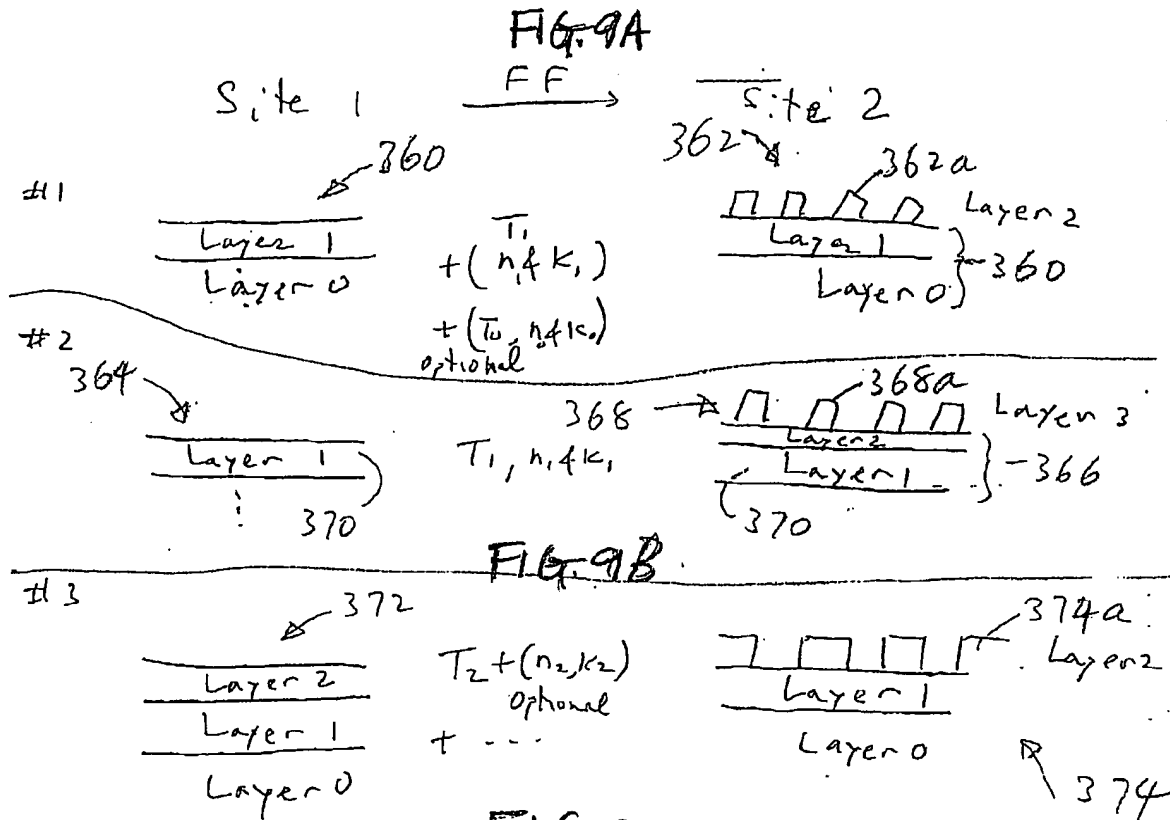 FIG. 9A
Site 1 FF Site 2
#1
360
Layer 1
Layer 0
T₁
+ (n₁ & k₁)
+ (T₀, n₀ & k₀)
optional
362
362a
Layer 2
Layer 1
Layer 0
360
#2
364
Layer 1
370
T₁, n₁ & k₁
368
368a
Layer 3
Layer 2
Layer 1
366
370
FIG. 9B
#3
372
Layer 2
Layer 1
Layer 0
T₂ + (n₂, k₂)
optional
+ ----
374a
Layer 2
Layer 1
Layer 0
374